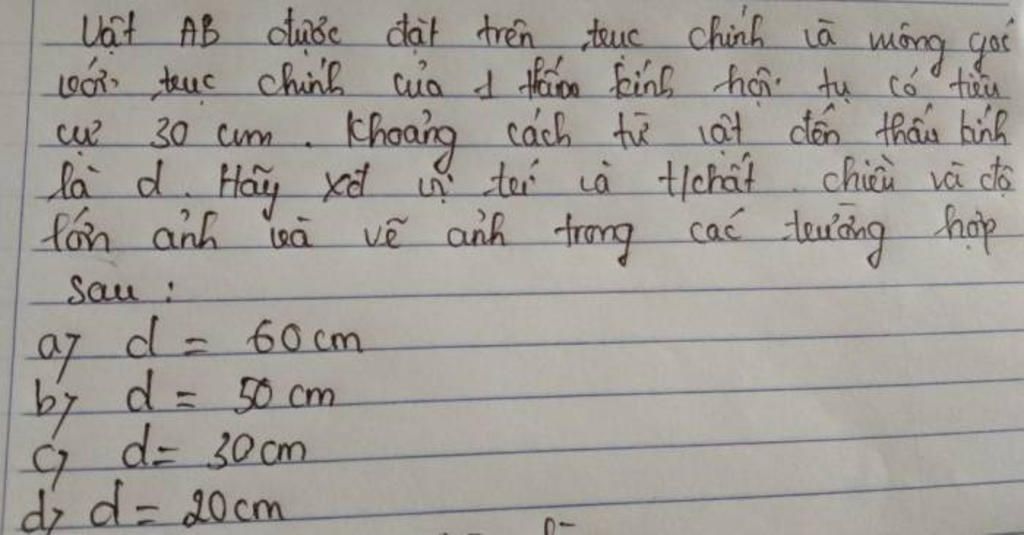 Vật AB được đặt trên trục chính và vuông góc
với trục chính của 1 thấu kính hội tụ có tiêu
cự 30 cm. Khoảng cách từ vật đến thấu kính
là d. Hãy xđ vị trí và t/chất chiều và độ
lớn ảnh và vẽ ảnh trong các trường hợp
sau :
a, d = 60 cm
b, d = 50 cm
c, d = 30 cm
d, d = 20 cm